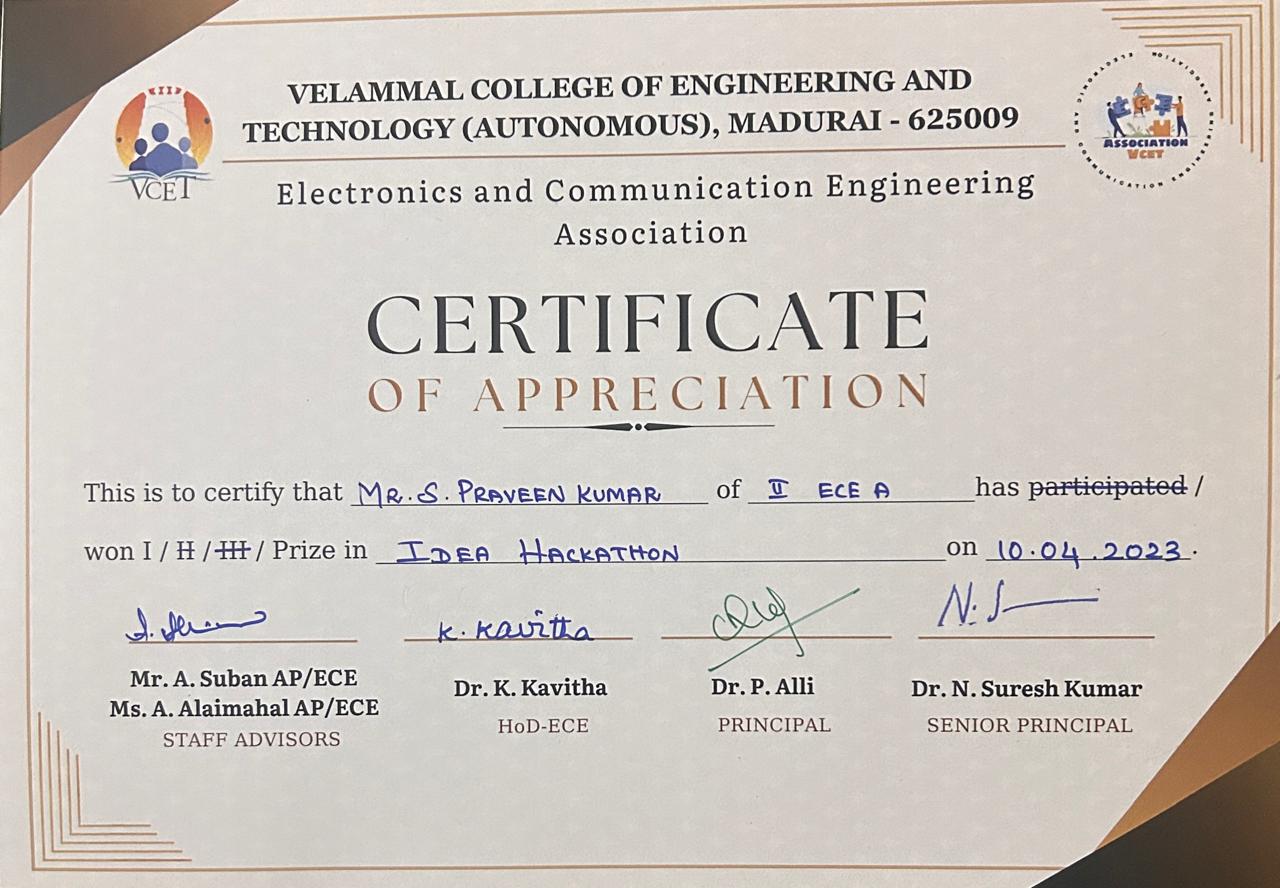 VELAMMAL COLLEGE OF ENGINEERING AND
TECHNOLOGY (AUTONOMOUS), MADURAI - 625009
VCET
ASSOCIATION
VCET
Electronics and Communication Engineering
Association
CERTIFICATE
OF APPRECIATION
This is to certify that MR. S. PRAVEEN KUMAR of II ECE A has participated /
won I / II / III / Prize in IDEA HACKATHON on 10.04.2023.
K. Kavitha
N. S
Mr. A. Suban AP/ECE
Ms. A. Alaimahal AP/ECE
STAFF ADVISORS
Dr. K. Kavitha
HoD-ECE
Dr. P. Alli
PRINCIPAL
Dr. N. Suresh Kumar
SENIOR PRINCIPAL